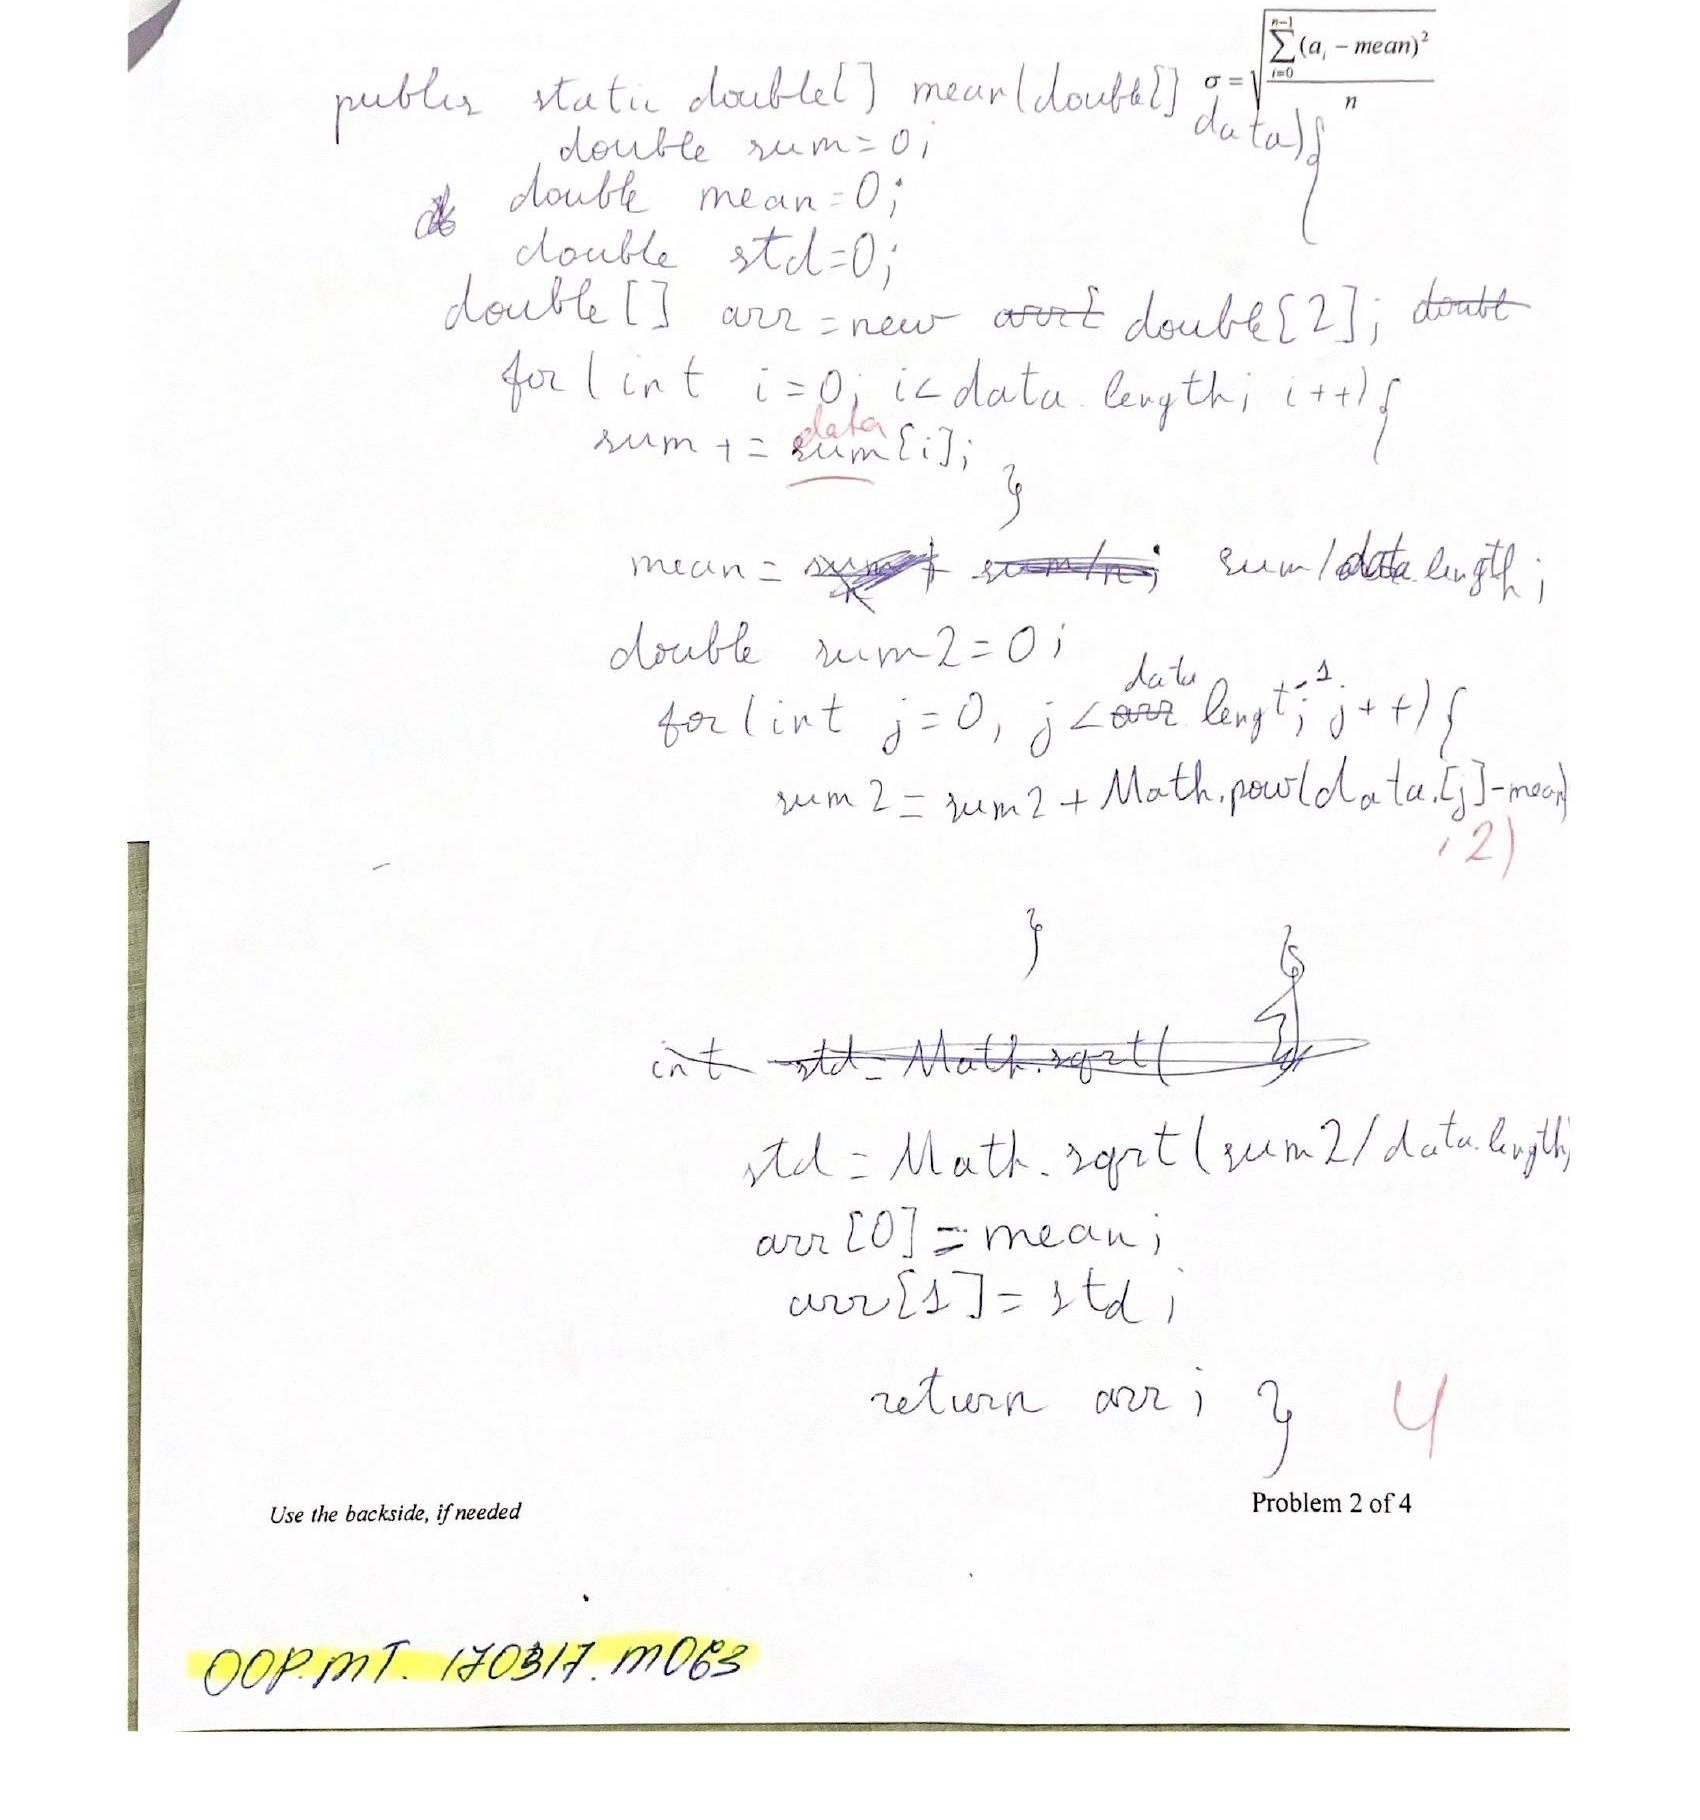 σ = √ n-1 ∑ i=0 (a_i - mean)² / n
public static double[] mean(double[] data){
double sum=0;
double mean=0;
double std=0;
double[] arr = new arr[ double[2]; doubl
for(int i=0; i< data.length; i++){
data
sum += sum[i];
}
mean = sum/n; sum/data.length;
double sum2=0;
data
for(int j=0, j< arr.lengt-1; j++){
sum2 = sum2 + Math.pow(data.[j]-mean)
,2)
}
int std= Math.sqrt(
std = Math.sqrt(sum2/data.length;
arr[0]=mean;
arr[1]=std;
return arr; } 4
Use the backside, if needed
Problem 2 of 4
OOP.MT.170317.M063